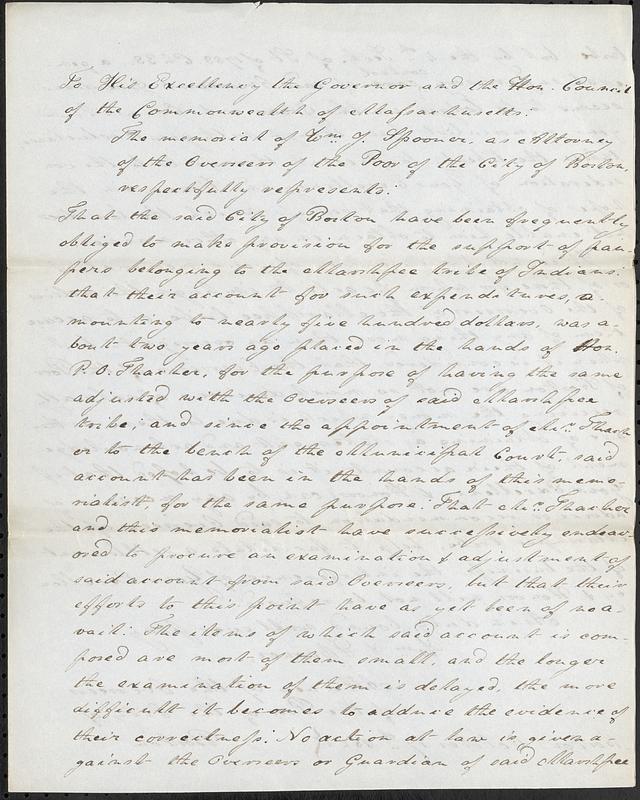 To His Excellency the Governor and the Hon. Council
of the Commonwealth of Massachusetts.
The memorial of Wm. J. Spooner, as Attorney
of the Overseers of the Poor of the City of Boston,
respectfully represents:
That the said City of Boston have been frequently
obliged to make provision for the support of pau-
pers belonging to the Marshpee tribe of Indians:
that their account for such expenditures, a-
mounting to nearly five hundred dollars, was a-
bout two years ago placed in the hands of Hon.
P. O. Thacher, for the purpose of having the same
adjusted with the Overseers of said Marshpee
tribe; and since the appointment of Mr. Thach-
er to the bench of the Municipal Court, said
account has been in the hands of this memo-
rialist, for the same purpose. That Mr. Thacher
and this memorialist have successively endeav-
ored to procure an examination & adjustment of
said account from said Overseers, but that their
efforts to this point have as yet been of no a-
vail. The items of which said account is com-
posed are most of them small, and the longer
the examination of them is delayed, the more
difficult it becomes to adduce the evidence of
their correctness. No action at law is given a-
gainst the Overseers or Guardian of said Marshpee